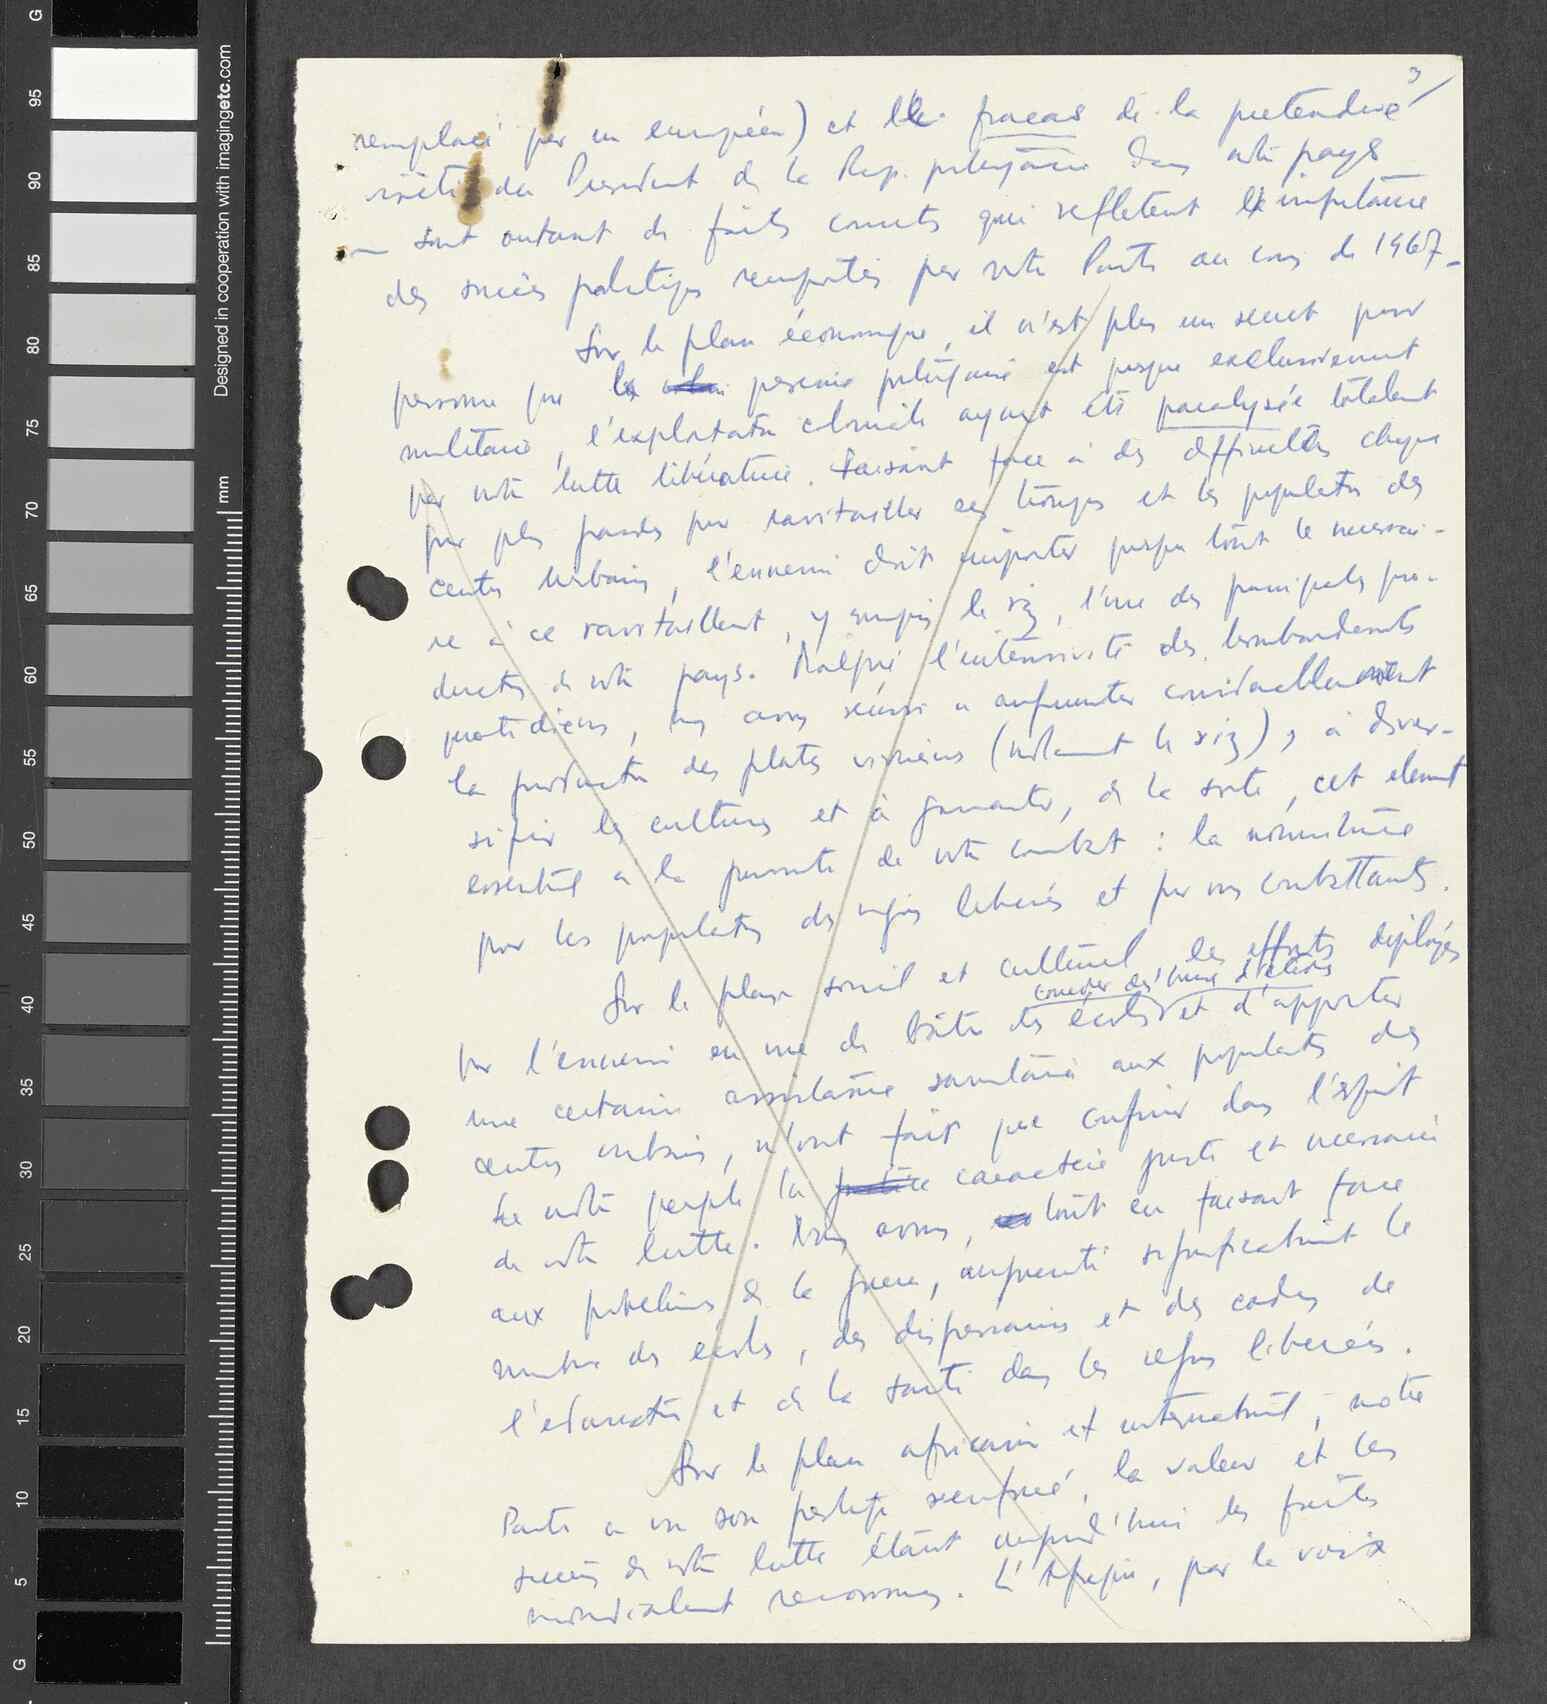 3/
remplacé par un européen) et le fracas de la pretendue
visite du President de la Rep. portugaise dans notre pays
— sont autant de faits concrets qui refletent l'importance
des succès politiques remportés par notre Parti au cours de 1967-
Sur le plan économique, il n'est plus un secret pour
personne que la presence portugaise est presque exclusivement
militaire, l'exploitation coloniale ayant été paralysée totalement
par notre lutte libératrice. Faisant face à des difficultés chaque
jour plus grandes pour ravitailler ses troupes et les populations des
centres urbains, l'ennemi doit importer presque tout le necessai-
re à ce ravitaillement, y compris le riz, l'une des principales pro-
ductions de notre pays. Malgré l'intensivité des bombardements
quotidiens, nous avons réussi a augmenter considerablement
la production des plantes vivrières (notamment le riz), à diver-
sifier les cultures et à garantir, de la sorte, cet element
essentiel a la poursuite de notre combat : la nourriture
pour les populations des regions liberées et pour nos combattants.
Sur le plan social et culturel, les efforts déployés
concéder des bourses d'études
par l'ennemi en vue de bâtir des écoles et d'apporter
une certaine assistance sanitaire aux populations des
centres urbains, n'ont fait que confirmer dans l'esprit
de notre peuple le caractère juste et necessaire
de notre lutte. Nous avons, tout en faisant face
aux problèmes de la guerre, augmenté significativement le
nombre des écoles, des dispensaires et des cadres de
l'education et de la santé dans les regions liberées.
Sur le plan africain et international, notre
Parti a vu son prestige renforcé, la valeur et les
succès de notre lutte étant aujourd'hui les faits
mondialement reconnus. L'Afrique, par la voix
G
95
90
85
80
75
70
65
60
55
50
45
40
35
30
25
20
15
10
5
G
mm
Designed in cooperation with imagingetc.com